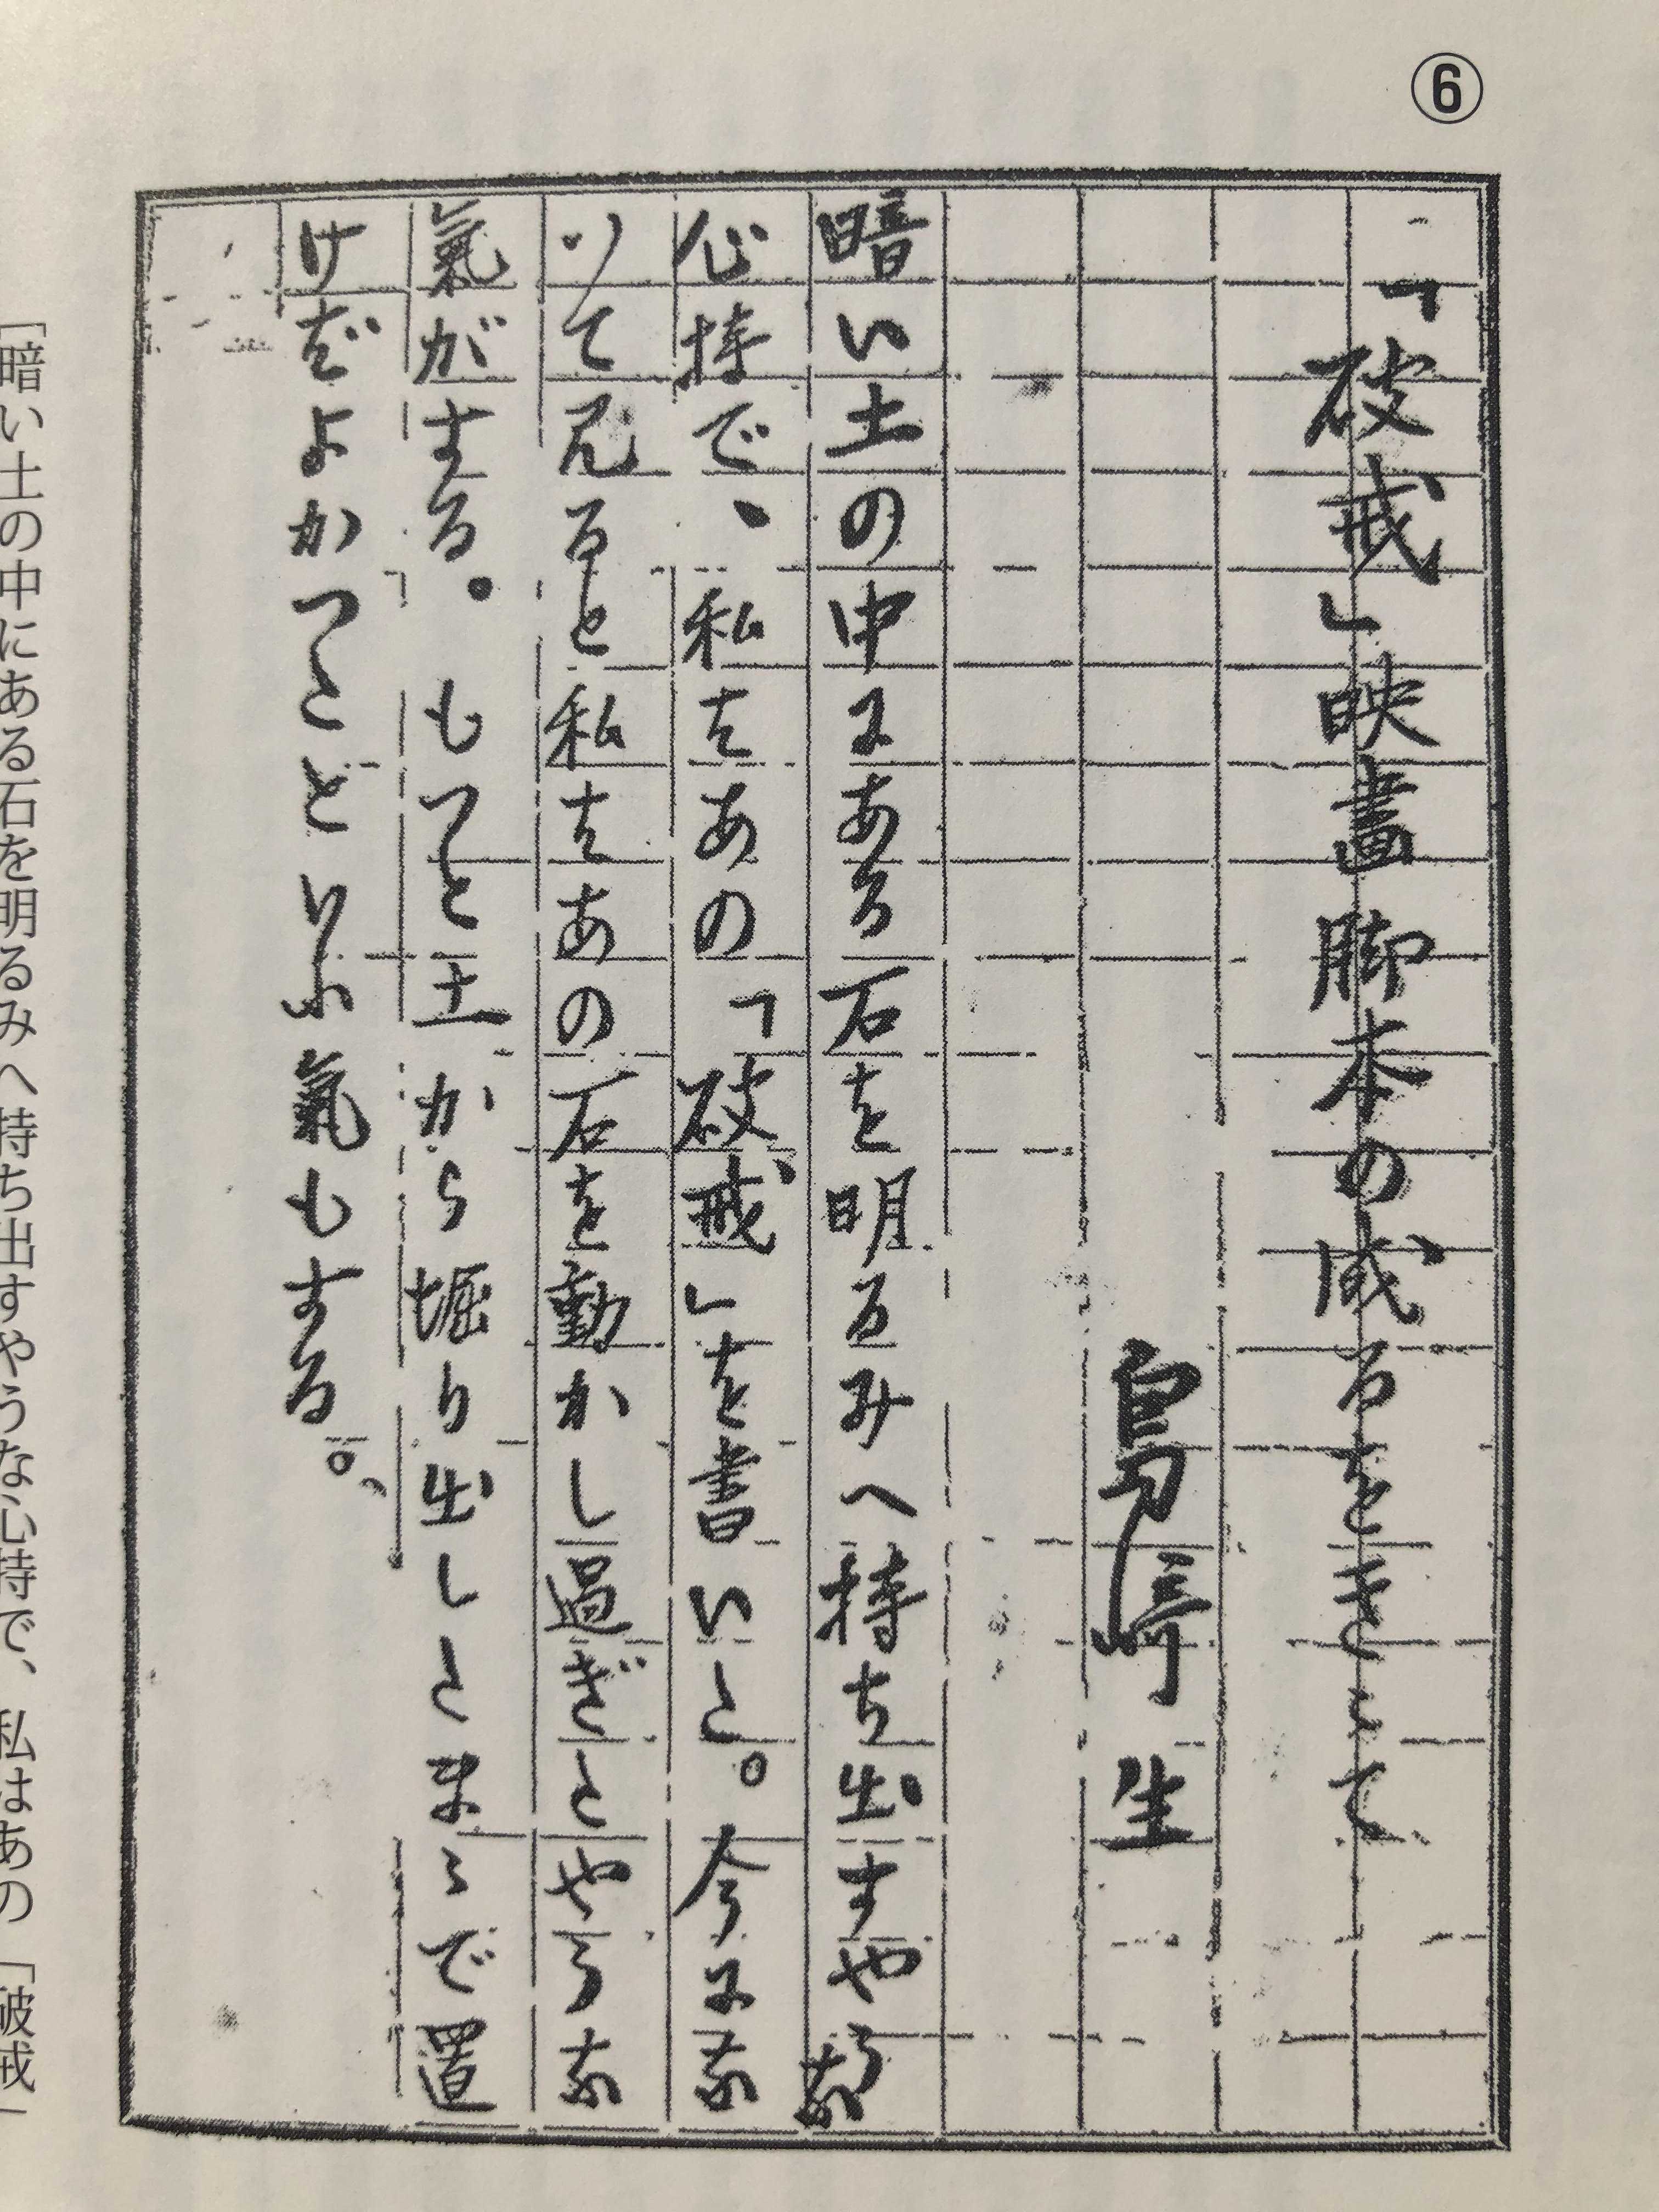 ⑥
「破戒」映畫脚本の成るをきゝて
島崎生
暗い土の中にある石を明るみへ持ち出すやうな
心持で、私はあの「破戒」を書いた。今にな
つて見ると私はあの石を動かし過ぎたやうな
氣がする。もつと土から堀り出したまゝで置
けばよかつたといふ氣もする。
「暗い土の中にある石を明るみへ持ち出すやうな心持で、私はあの「破戒」